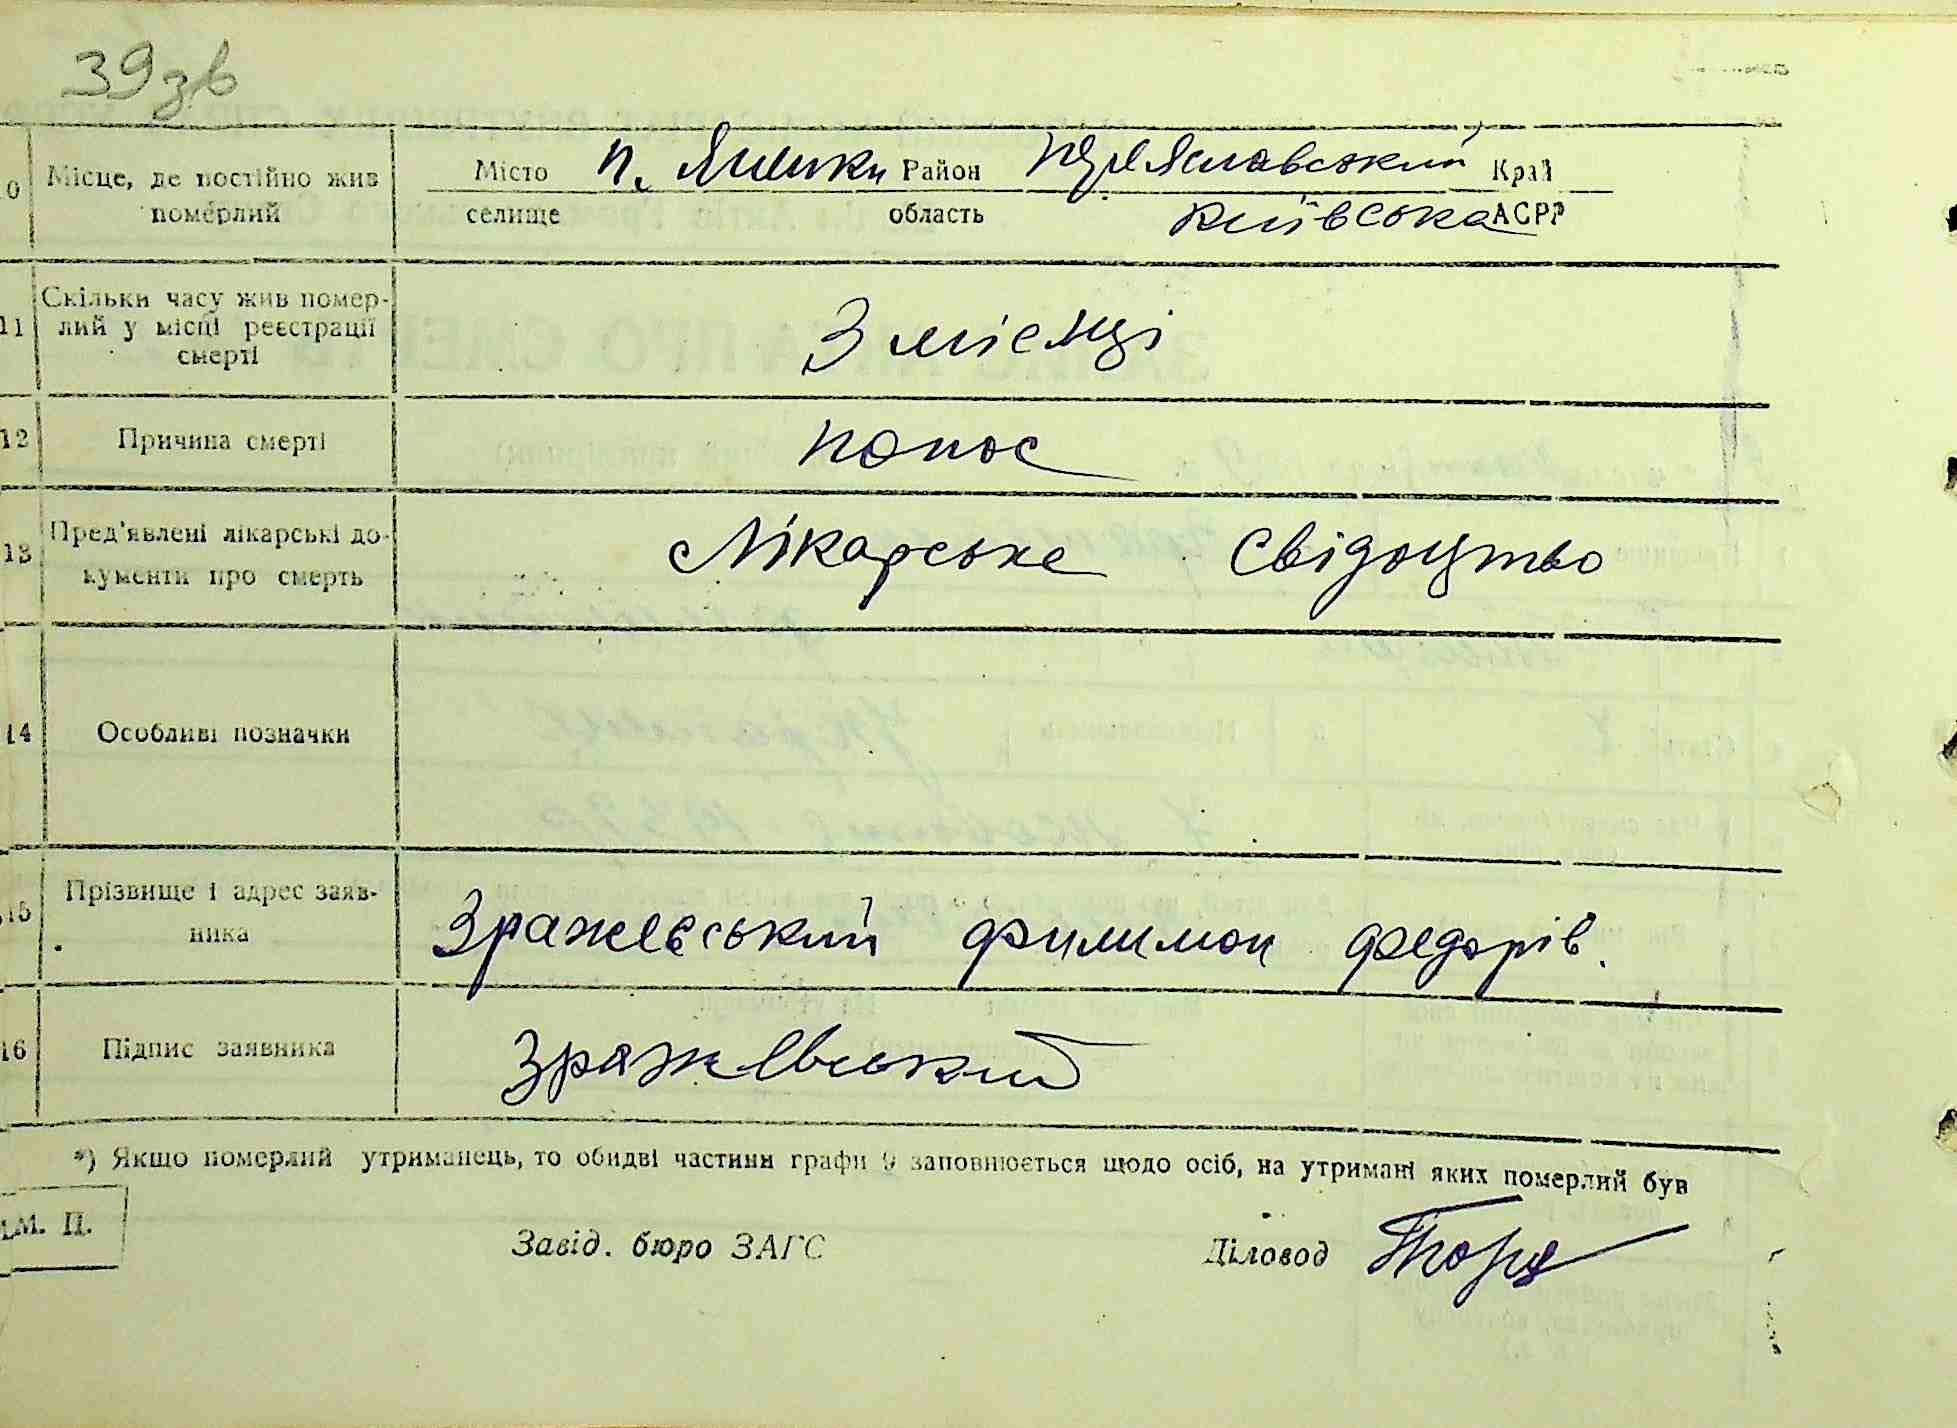 39зв
10 Місце, де постійно жив померлий
Місто п. Яшики Район Переяславський Край
селище область Київська АСРР
11 Скільки часу жив померлий у місці реєстрації смерті
3 місяці
12 Причина смерті
понос
13 Пред'явлені лікарські документи про смерть
Лікарське свідоцтво
14 Особливі позначки
15 Прізвище і адрес заявника
Зражевський Филимон Федорів.
16 Підпис заявника
Зражевський
*) Якщо померлий утриманець, то обидві частини графи 9 заповнюється щодо осіб, на утримані яких померлий був
М. П.
Завід. бюро ЗАГС
Діловод